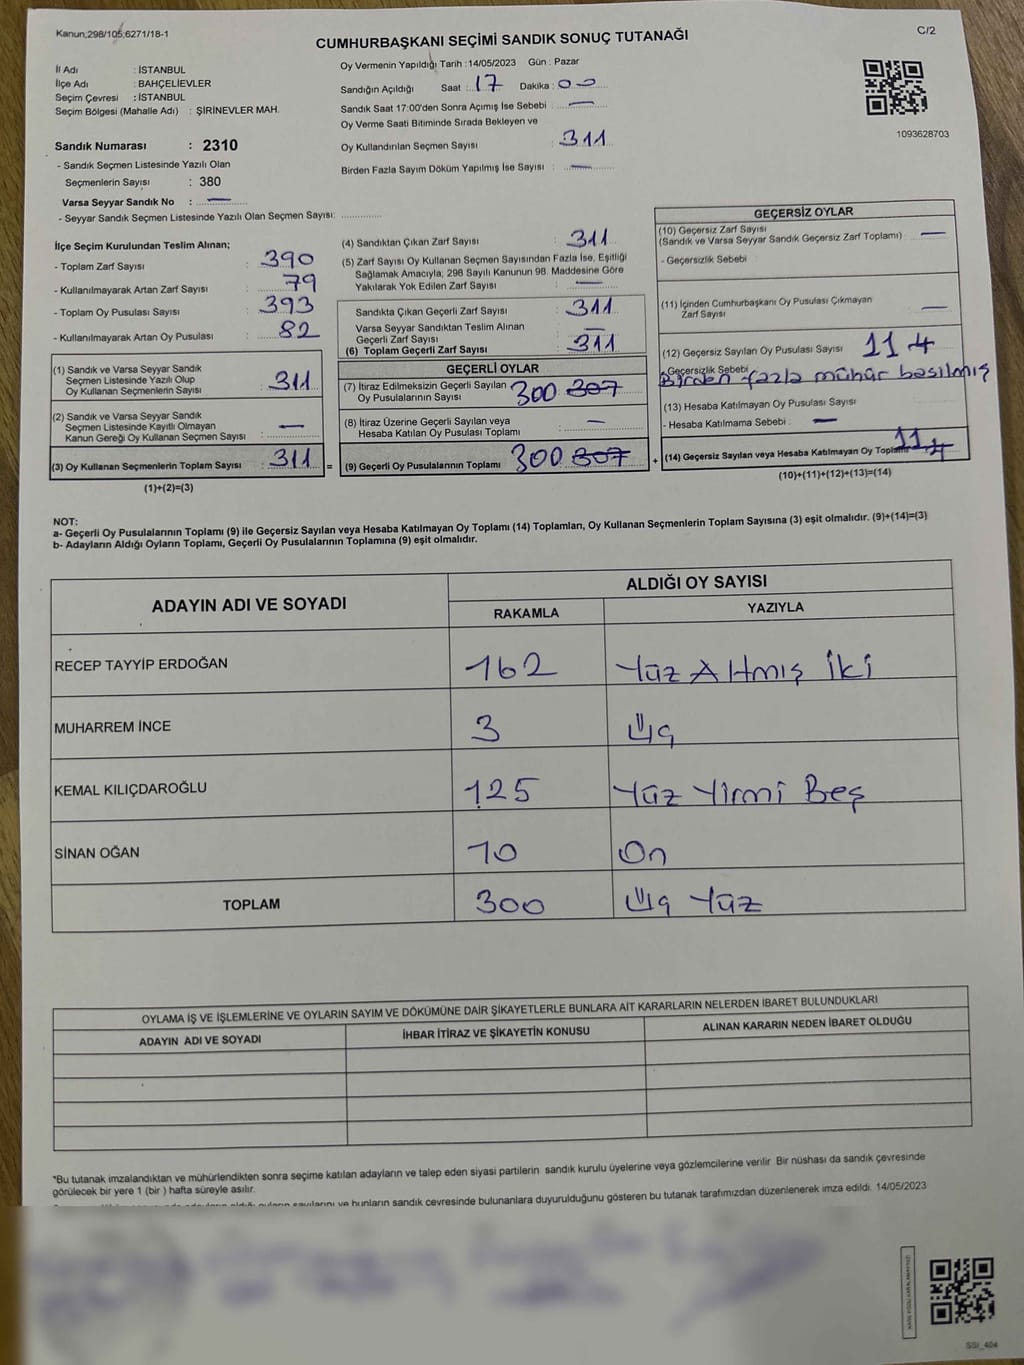 Kanun;298/105;6271/18-1
C/2
CUMHURBAŞKANI SEÇİMİ SANDIK SONUÇ TUTANAĞI
İl Adı : İSTANBUL
İlçe Adı : BAHÇELİEVLER
Seçim Çevresi : İSTANBUL
Seçim Bölgesi (Mahalle Adı) : ŞİRİNEVLER MAH.
Sandık Numarası : 2310
- Sandık Seçmen Listesinde Yazılı Olan
Seçmenlerin Sayısı : 380
Varsa Seyyar Sandık No : —
- Seyyar Sandık Seçmen Listesinde Yazılı Olan Seçmen Sayısı:
Oy Vermenin Yapıldığı Tarih :14/05/2023 Gün : Pazar
Sandığın Açıldığı Saat : 17 Dakika : 00
Sandık Saat 17:00'den Sonra Açımış İse Sebebi : —
Oy Verme Saati Bitiminde Sırada Bekleyen ve
Oy Kullandırılan Seçmen Sayısı : 311
Birden Fazla Sayım Döküm Yapılmış İse Sayısı : —
1093628703
İlçe Seçim Kurulundan Teslim Alınan;
- Toplam Zarf Sayısı : 390
- Kullanılmayarak Artan Zarf Sayısı : 79
- Toplam Oy Pusulası Sayısı : 393
- Kullanılmayarak Artan Oy Pusulası : 82
(1) Sandık ve Varsa Seyyar Sandık
Seçmen Listesinde Yazılı Olup
Oy Kullanan Seçmenlerin Sayısı : 311
(2) Sandık ve Varsa Seyyar Sandık
Seçmen Listesinde Kayıtlı Olmayan
Kanun Gereği Oy Kullanan Seçmen Sayısı : —
(3) Oy Kullanan Seçmenlerin Toplam Sayısı : 311 =
(1)+(2)=(3)
(4) Sandıktan Çıkan Zarf Sayısı : 311
(5) Zarf Sayısı Oy Kullanan Seçmen Sayısından Fazla İse, Eşitliği
Sağlamak Amacıyla; 298 Sayılı Kanunun 98. Maddesine Göre
Yakılarak Yok Edilen Zarf Sayısı : —
Sandıkta Çıkan Geçerli Zarf Sayısı : 311
Varsa Seyyar Sandıktan Teslim Alınan
Geçerli Zarf Sayısı : —
(6) Toplam Geçerli Zarf Sayısı : 311
GEÇERLİ OYLAR
(7) İtiraz Edilmeksizin Geçerli Sayılan
Oy Pusulalarının Sayısı 300 307
(8) İtiraz Üzerine Geçerli Sayılan veya
Hesaba Katılan Oy Pusulası Toplamı : —
(9) Geçerli Oy Pusulalarının Toplamı 300 307 +
GEÇERSİZ OYLAR
(10) Geçersiz Zarf Sayısı
(Sandık ve Varsa Seyyar Sandık Geçersiz Zarf Toplamı) : —
- Geçersizlik Sebebi :
(11) İçinden Cumhurbaşkanı Oy Pusulası Çıkmayan
Zarf Sayısı : —
(12) Geçersiz Sayılan Oy Pusulası Sayısı 11 4
- Geçersizlik Sebebi
Birden fazla mühür basılmış
(13) Hesaba Katılmayan Oy Pusulası Sayısı :
- Hesaba Katılmama Sebebi : —
(14) Geçersiz Sayılan veya Hesaba Katılmayan Oy Toplamı 11 4
(10)+(11)+(12)+(13)=(14)
NOT:
a- Geçerli Oy Pusulalarının Toplamı (9) ile Geçersiz Sayılan veya Hesaba Katılmayan Oy Toplamı (14) Toplamları, Oy Kullanan Seçmenlerin Toplam Sayısına (3) eşit olmalıdır. (9)+(14)=(3)
b- Adayların Aldığı Oyların Toplamı, Geçerli Oy Pusulalarının Toplamına (9) eşit olmalıdır.
ADAYIN ADI VE SOYADI
ALDIĞI OY SAYISI
RAKAMLA YAZIYLA
RECEP TAYYİP ERDOĞAN 162 Yüz Altmış İki
MUHARREM İNCE 3 Üç
KEMAL KILIÇDAROĞLU 125 Yüz Yirmi Beş
SİNAN OĞAN 10 On
TOPLAM 300 Üç Yüz
OYLAMA İŞ VE İŞLEMLERİNE VE OYLARIN SAYIM VE DÖKÜMÜNE DAİR ŞİKAYETLERLE BUNLARA AİT KARARLARIN NELERDEN İBARET BULUNDUKLARI
ADAYIN ADI VE SOYADI İHBAR İTİRAZ VE ŞİKAYETİN KONUSU ALINAN KARARIN NEDEN İBARET OLDUĞU
*Bu tutanak imzalandıktan ve mühürlendikten sonra seçime katılan adayların ve talep eden siyasi partilerin sandık kurulu üyelerine veya gözlemcilerine verilir. Bir nüshası da sandık çevresinde
görülecek bir yere 1 (bir ) hafta süreyle asılır.
sayılarını ve bunların sandık çevresinde bulunanlara duyurulduğunu gösteren bu tutanak tarafımızdan düzenlenerek imza edildi. 14/05/2023
SSI_404